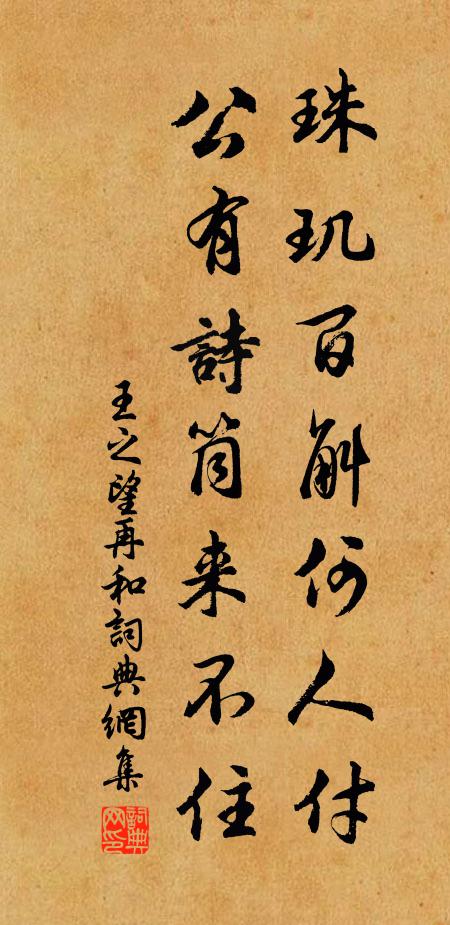 珠玑百斛何人付
公有詩筒来不住
王之望再和詞典網集
詞典网印